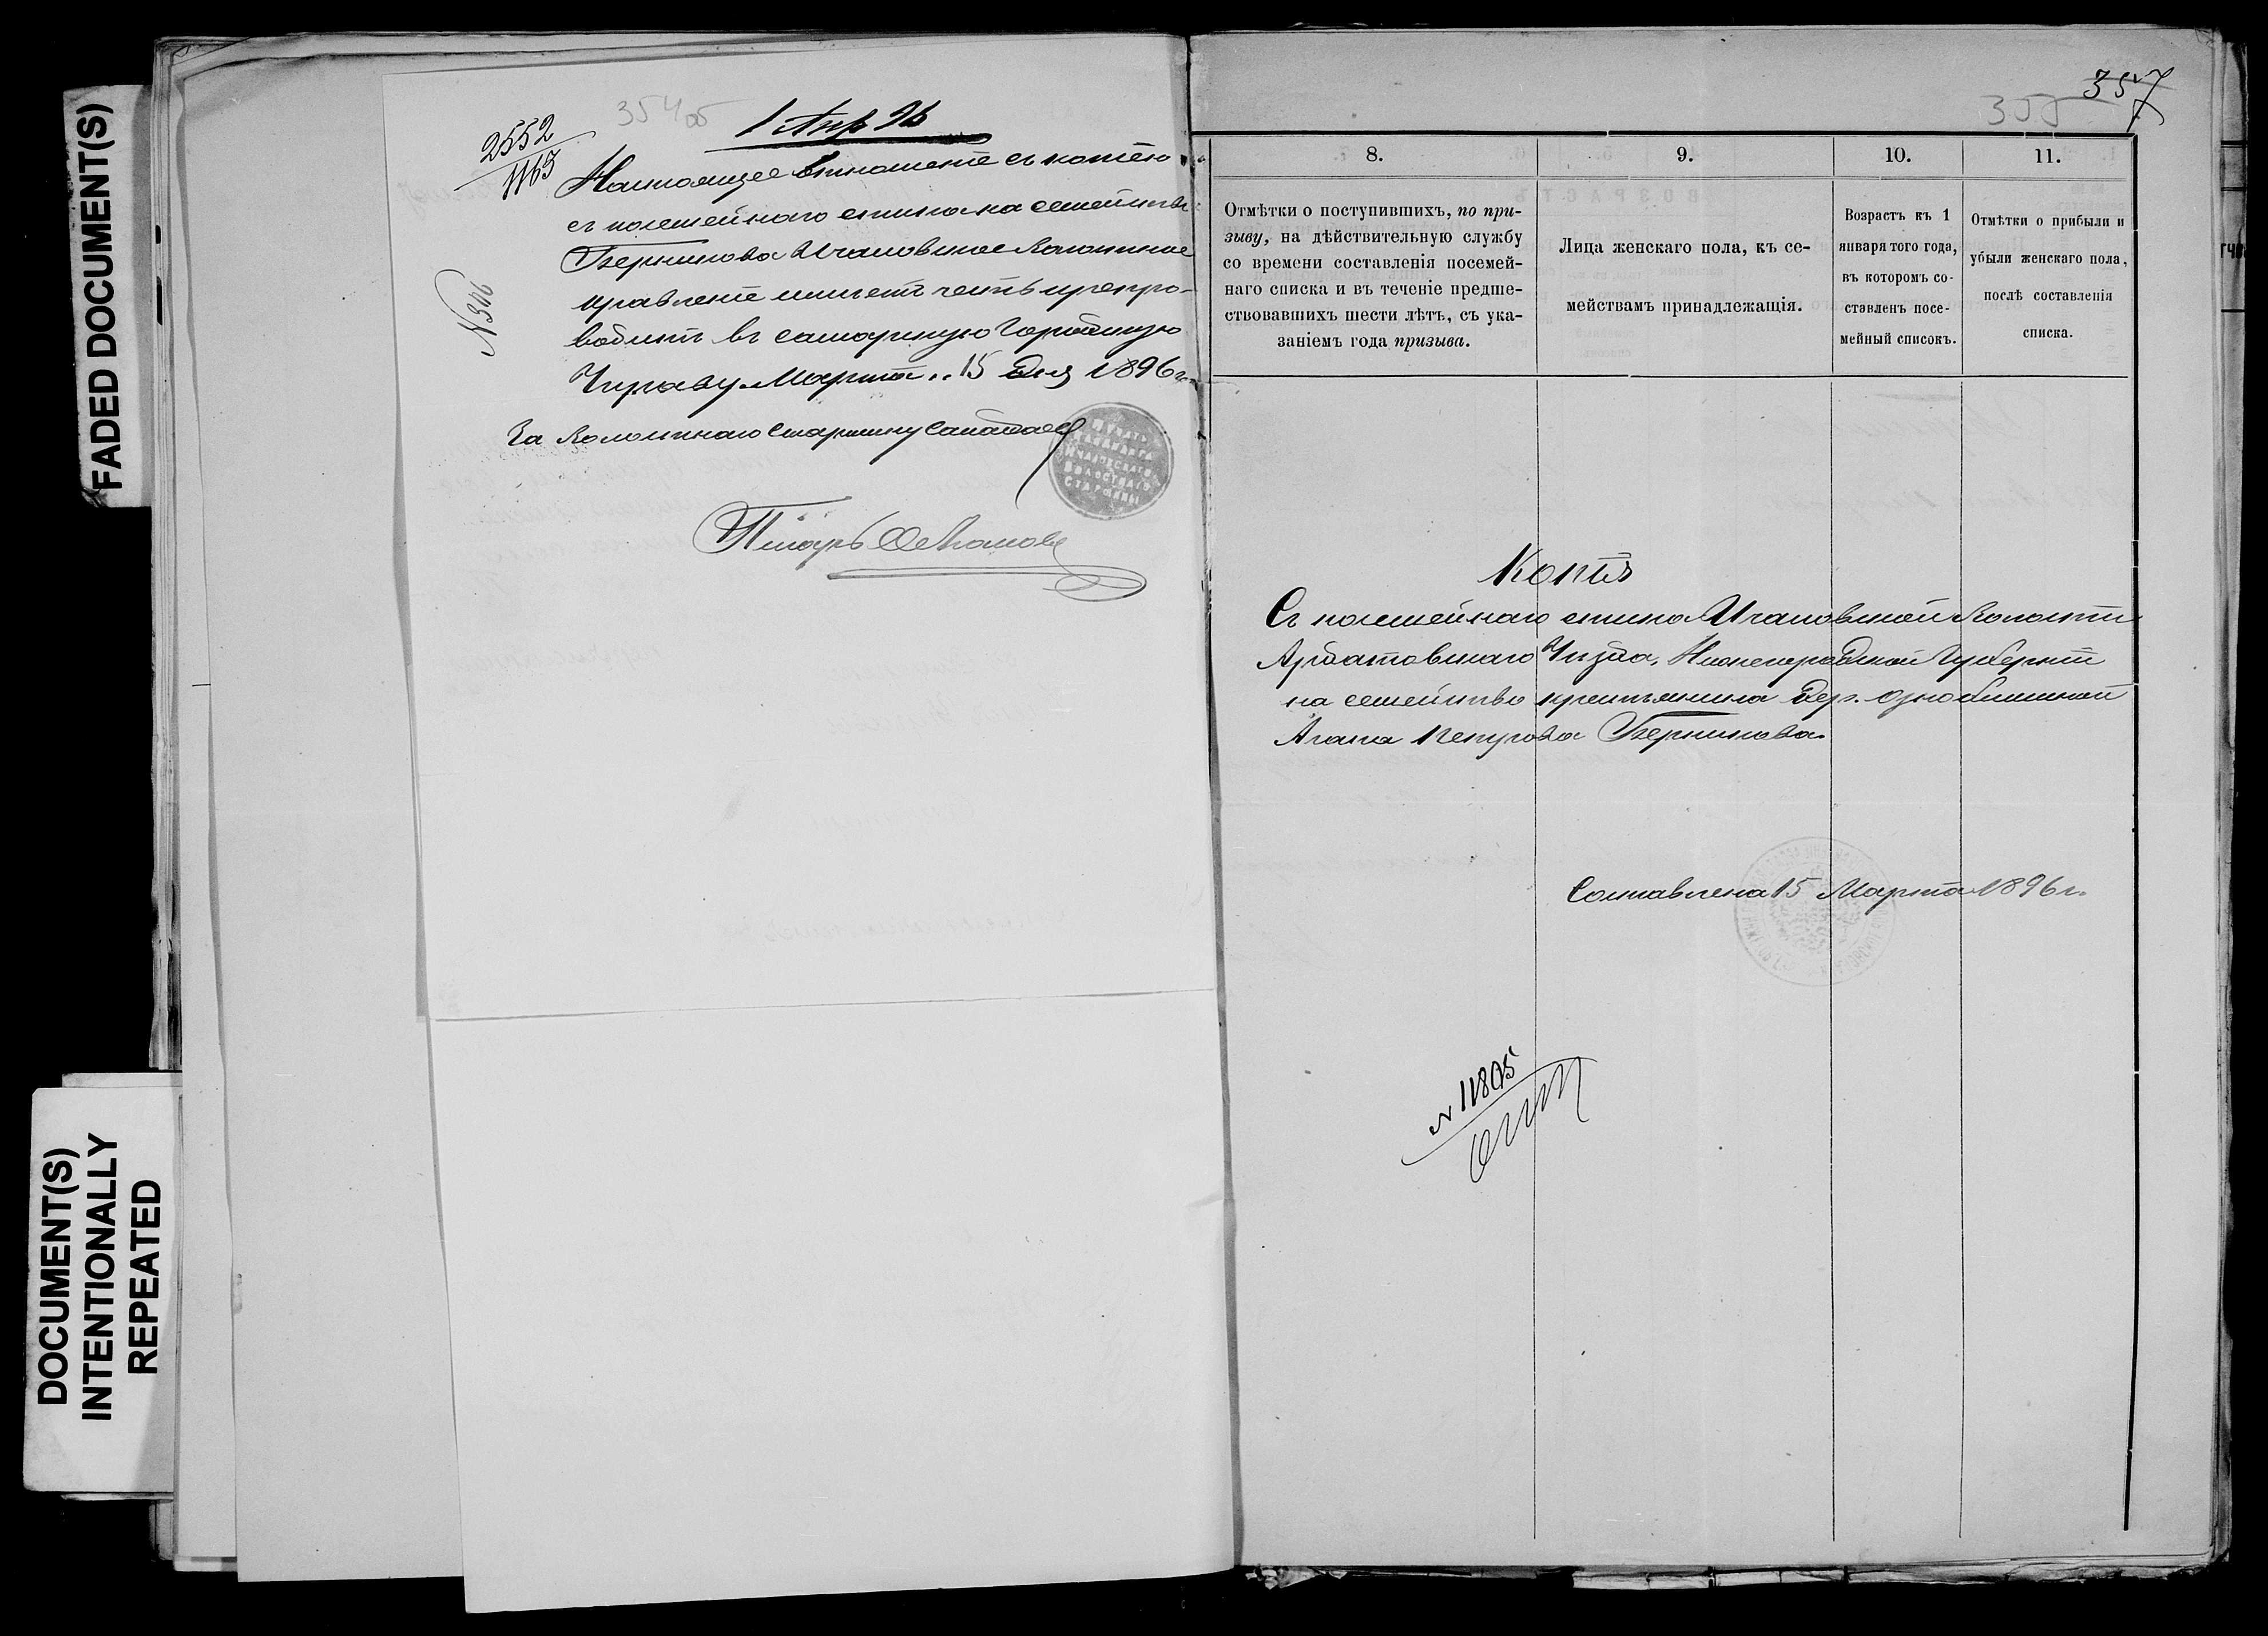 FADED DOCUMENT(S)
DOCUMENT(S)
INTENTIONALLY
REPEATED
2552
1165
354 об
1 Апр 96
№ 306
Настоящее отношенiе съ копiею
съ посемейнаго списка на семейство
Берникова Ичаловское Волостное
правленiе имѣетъ честь препро-
водить въ самарскую Городскую
Управу Марта 15 дня 1896 г.
За Волостнаго Старшину
ПЕЧАТЬ
ИЧАЛОВСКАГО
ВОЛОСТНАГО
СТАРШИНЫ
Писарь
357
355
8.
9.
10.
11.
Отмѣтки о поступившихъ, по при-
зыву, на дѣйствительную службу
со времени составленiя посемей-
наго списка и въ теченiе предше-
ствовавшихъ шести лѣтъ, съ ука-
занiемъ года призыва.
Лица женскаго пола, къ се-
мействамъ принадлежащiя.
Возрастъ къ 1
января того года,
въ которомъ со-
ставленъ посе-
мейный списокъ.
Отмѣтки о прибыли и
убыли женскаго пола,
послѣ составленiя
списка.
Копiя
Съ посемейнаго списка Ичаловской Волости
Ардатовскаго Уѣзда, Нижегородской Губернiи
на семейство крестьянина дер.
Агапа Берникова.
Составлена 15 Марта 1896 г.
№ 11805